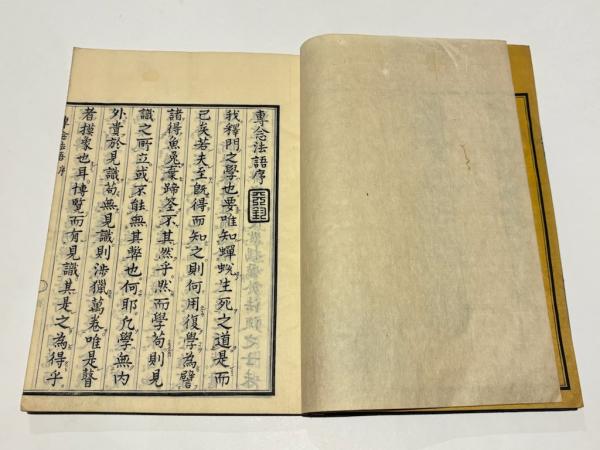 專念法語序
我釋門之學也要唯知蟬蛻生死之道是而
已矣若夫至既得而知之則何用復學為譬
諸得魚兎棄蹄筌不其然乎然而學苟則見
識之所立或不能無其弊也何耶凡學無内
外貴於見識苟無見識則涉獵萬卷唯是瞽
者摸象也耳博覽而有見識其是之為得乎
專念法語 序